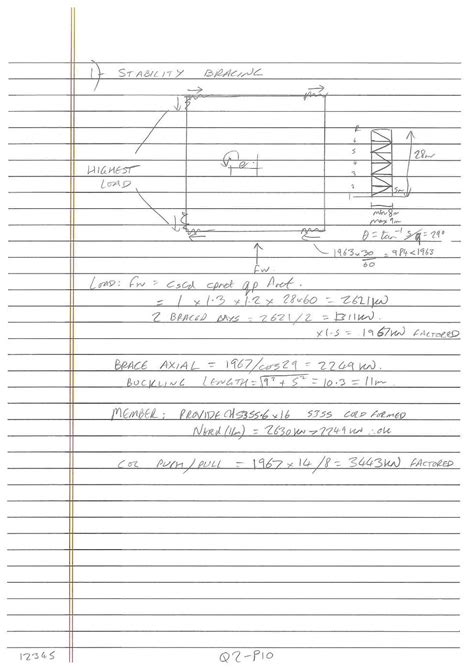 1) STABILITY BRACING
HIGHEST
LOAD
R
6
5
4
3
2
1
28m
5m
min 8m
max 9m
θ = tan⁻¹ 5/9 = 29°
1963x30 = 984 < 1963
60
Fw
LOAD: Fw = cscd cpnet qp Aref.
= 1 x 1.3 x 1.2 x 28x60 = 2621kN
2 BRACED BAYS = 2621/2 = 1311kN.
x1.5 = 1967kN FACTORED
BRACE AXIAL = 1967/cos29 = 2249kN.
BUCKLING LENGTH = √9² + 5² = 10.3 = 11m
MEMBER: PROVIDE CHS 355.6 x 16 S355 COLD FORMED
Nbrd (11m) = 2630kN > 2249kN ∴ ok
COL PUSH/PULL = 1967 x 14/8 = 3443kN FACTORED
12345
Q2-P10